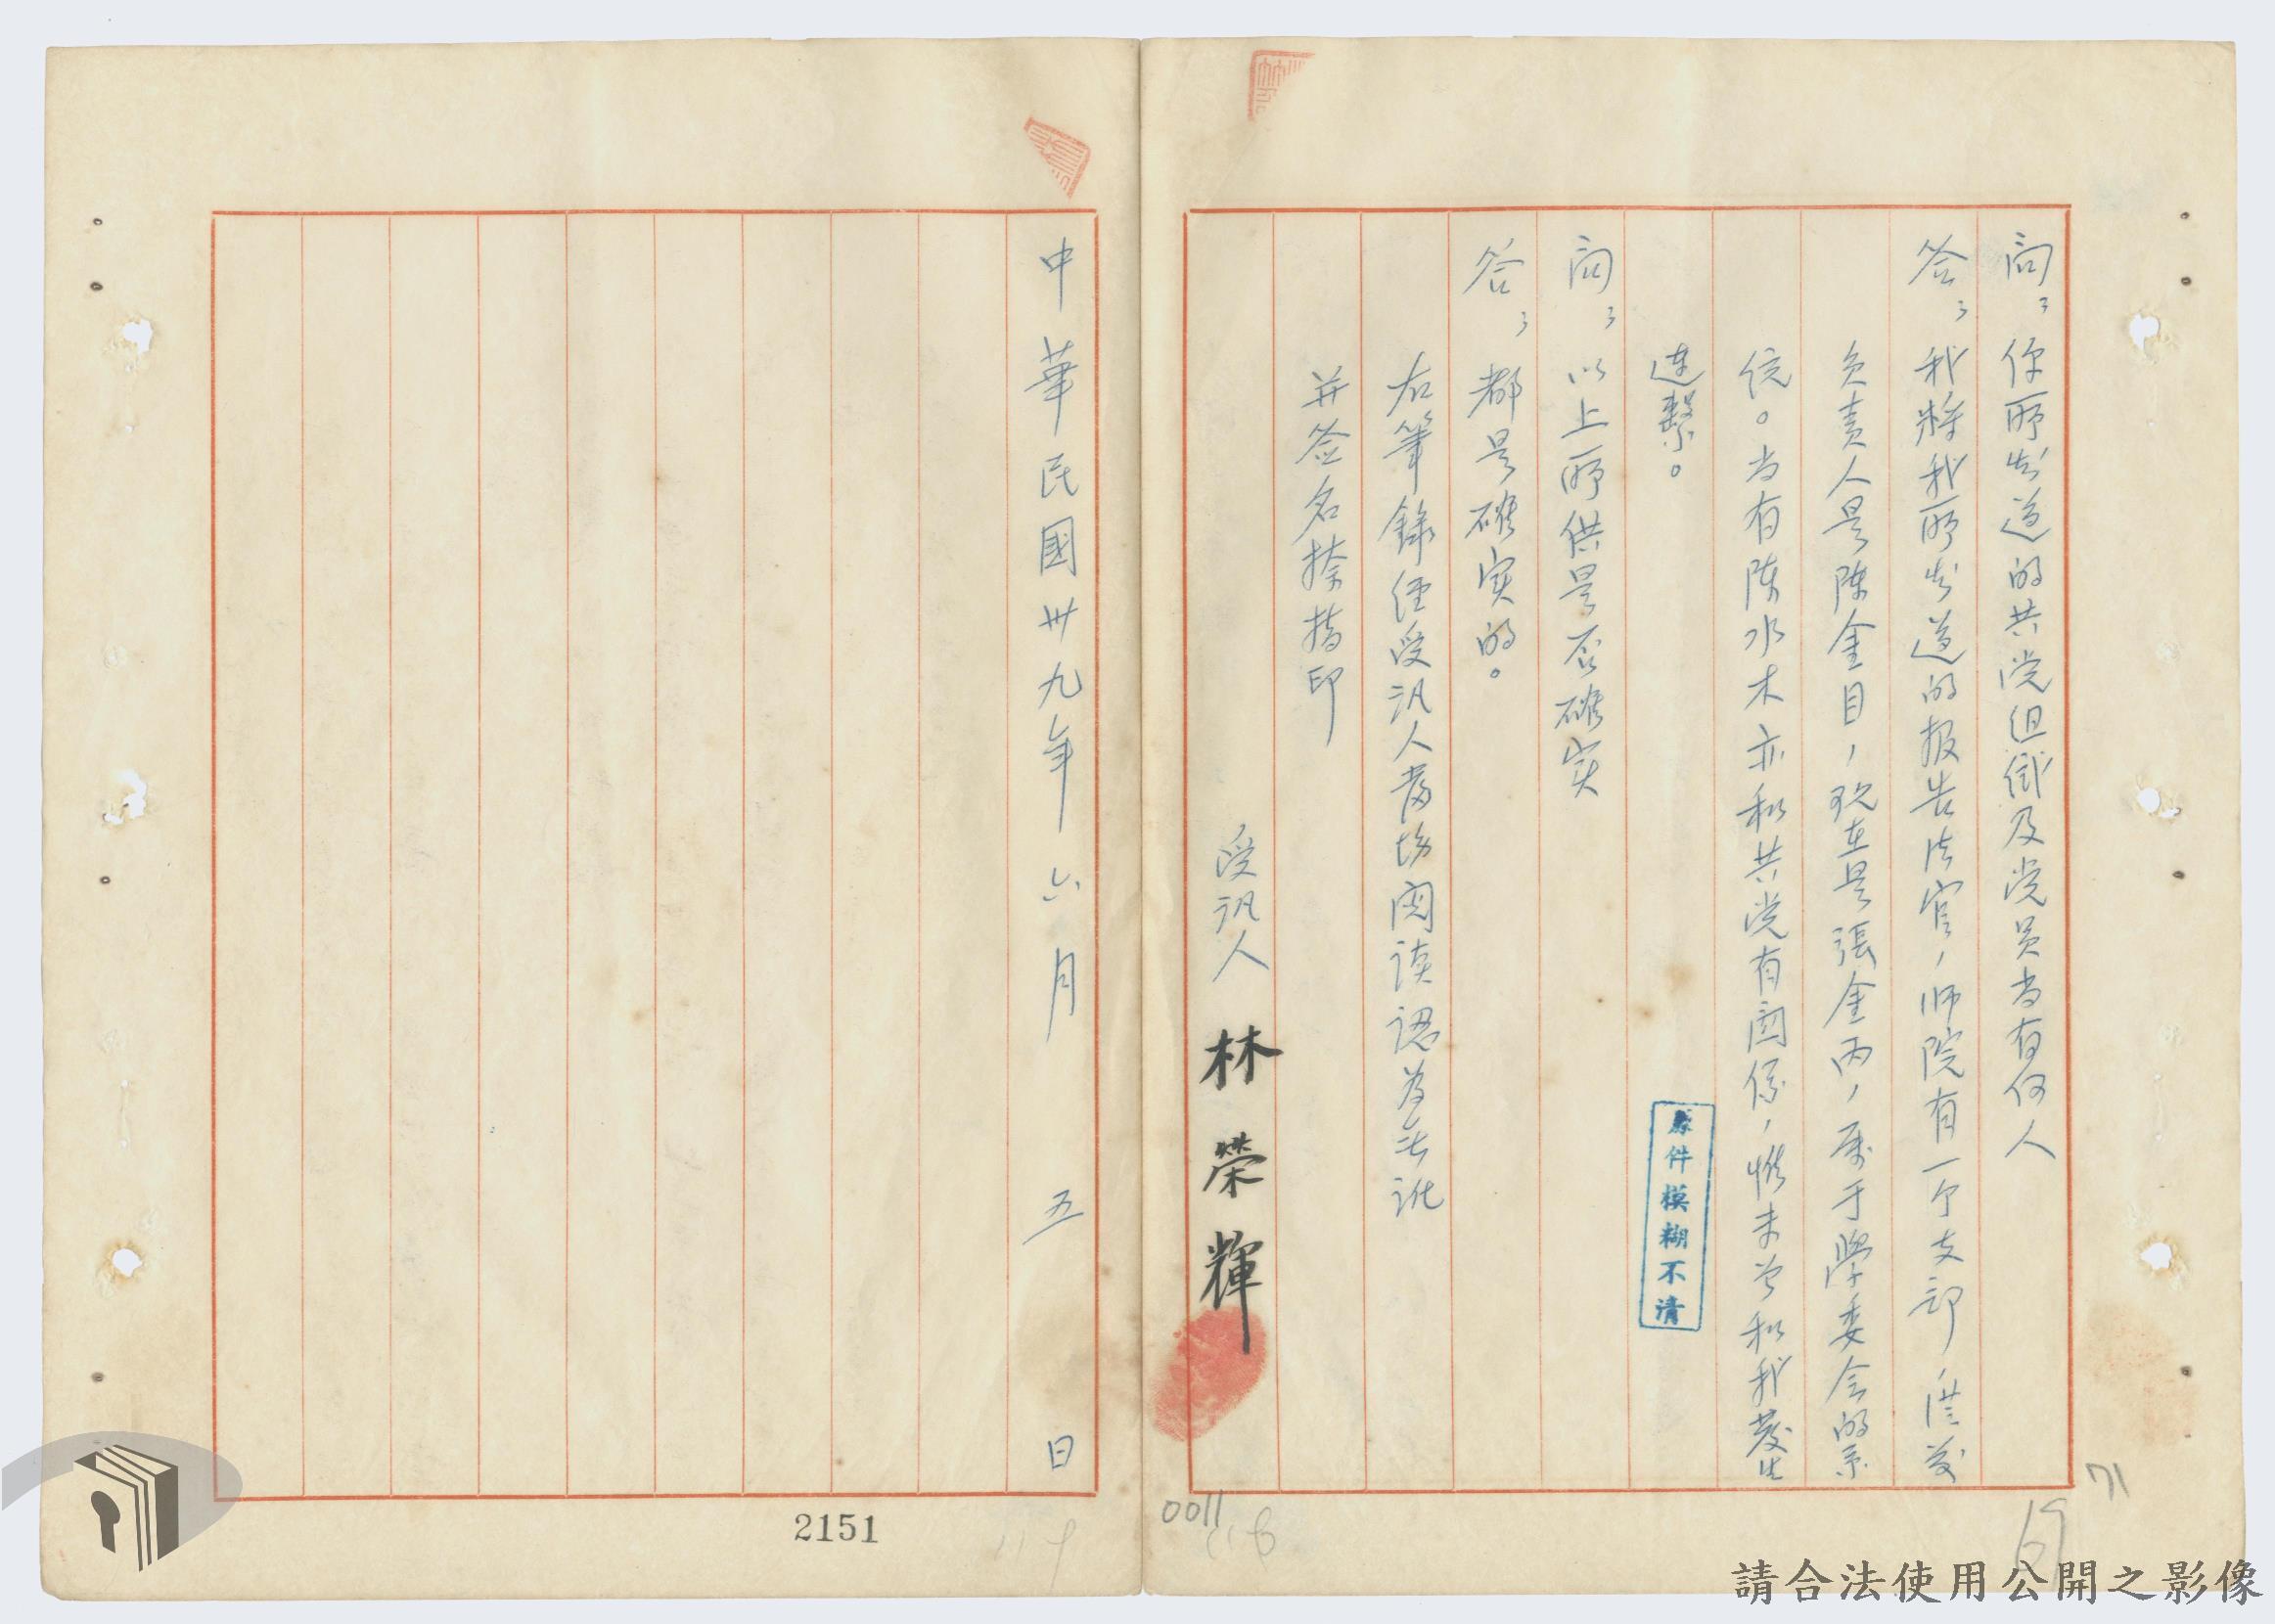 問:你所知道的共党组織及党員尚有何人
答:我將我所知道的报告法官,师院有一个支部,從前
负责人是陈金目,现在是張金丙,属于學委会的系
统。尚有陈水木亦和共党有関係,惟未曾和我發生
連繫。
問:以上所供是否確实
答:都是確实的。
右筆錄經受訊人當场閱读認為无訛
并签名捺指印
受訊人 林榮輝
中華民國卅九年六月五日
原件模糊不清
2151
0011
118
119
71
請合法使用公開之影像